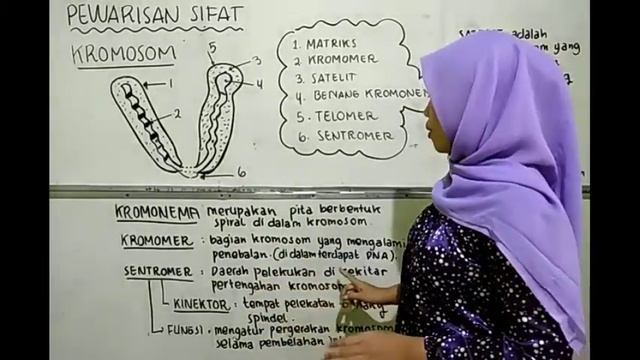 PEWARISAN SIFAT
KROMOSOM
5
3
4
1
2
6
1. MATRIKS
2 KROMOMER
3. SATELIT
4. BENANG
5. TELOMER
6. SENTROMER
adalah
yang
KROMONEMA merupakan pita berbentuk
spiral di dalam kromosom.
KROMOMER : bagian kromosom yang mengalami
penebalan. (di dalam terdapat DNA).
SENTROMER : Daerah pelekukan di sekitar
pertengahan kromosom
KINEKTOR : tempat pelekatan
spindel.
FUNGSI : mengatur pergerakan kromosom
selama pembelahan